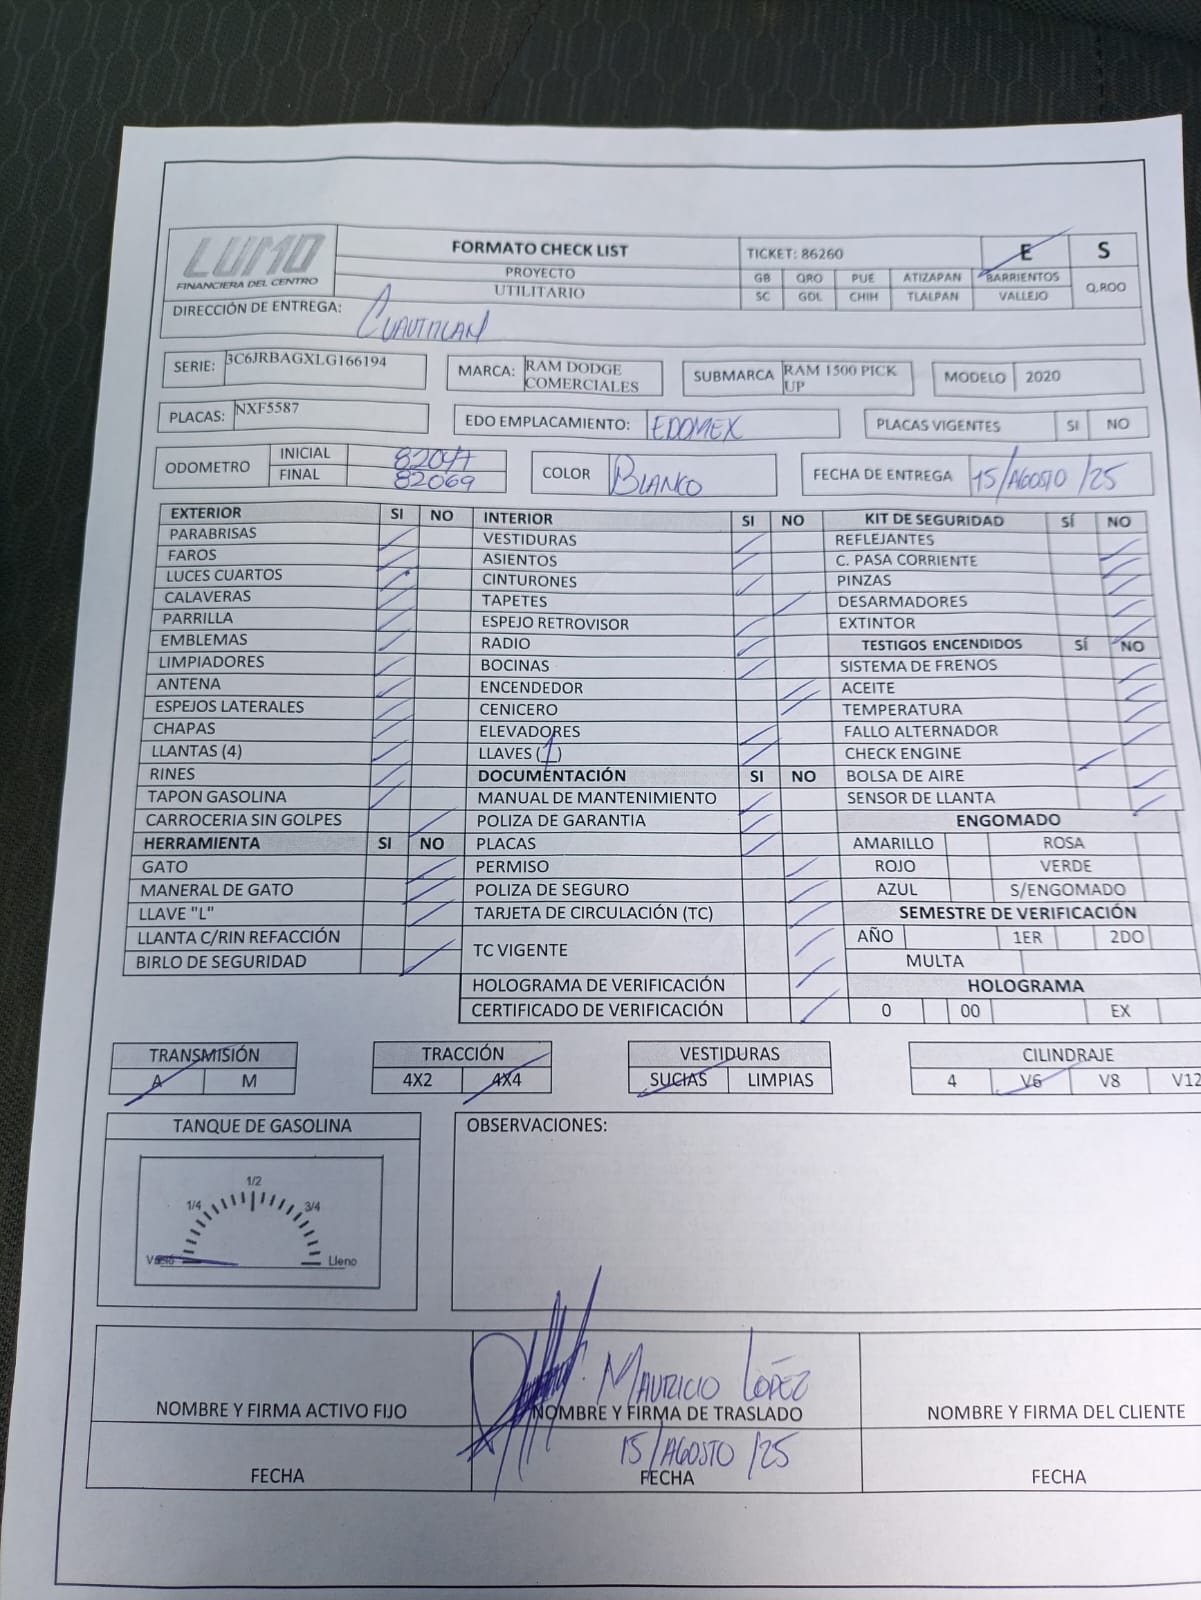 LUMO
FINANCIERA DEL CENTRO
FORMATO CHECK LIST
PROYECTO
UTILITARIO
TICKET: 86260
E S
GB QRO PUE ATIZAPAN BARRIENTOS
SC GDL CHIH TLALPAN VALLEJO
Q.ROO
DIRECCIÓN DE ENTREGA: CUAUTITLAN
SERIE: 3C6JRBAGXLG166194
MARCA: RAM DODGE COMERCIALES
SUBMARCA RAM 1500 PICK UP
MODELO 2020
PLACAS: NXF5587
EDO EMPLACAMIENTO: EDOMEX
PLACAS VIGENTES SI NO
ODOMETRO INICIAL 82047
FINAL 82069
COLOR BLANCO
FECHA DE ENTREGA 15/AGOSTO/25
EXTERIOR SI NO
PARABRISAS
FAROS
LUCES CUARTOS
CALAVERAS
PARRILLA
EMBLEMAS
LIMPIADORES
ANTENA
ESPEJOS LATERALES
CHAPAS
LLANTAS (4)
RINES
TAPON GASOLINA
CARROCERIA SIN GOLPES
HERRAMIENTA SI NO
GATO
MANERAL DE GATO
LLAVE "L"
LLANTA C/RIN REFACCIÓN
BIRLO DE SEGURIDAD
INTERIOR SI NO
VESTIDURAS
ASIENTOS
CINTURONES
TAPETES
ESPEJO RETROVISOR
RADIO
BOCINAS
ENCENDEDOR
CENICERO
ELEVADORES
LLAVES (1)
DOCUMENTACIÓN SI NO
MANUAL DE MANTENIMIENTO
POLIZA DE GARANTIA
PLACAS
PERMISO
POLIZA DE SEGURO
TARJETA DE CIRCULACIÓN (TC)
TC VIGENTE
HOLOGRAMA DE VERIFICACIÓN
CERTIFICADO DE VERIFICACIÓN
KIT DE SEGURIDAD SÍ NO
REFLEJANTES
C. PASA CORRIENTE
PINZAS
DESARMADORES
EXTINTOR
TESTIGOS ENCENDIDOS SÍ NO
SISTEMA DE FRENOS
ACEITE
TEMPERATURA
FALLO ALTERNADOR
CHECK ENGINE
BOLSA DE AIRE
SENSOR DE LLANTA
ENGOMADO
AMARILLO ROSA
ROJO VERDE
AZUL S/ENGOMADO
SEMESTRE DE VERIFICACIÓN
AÑO 1ER 2DO
MULTA
HOLOGRAMA
0 00 EX
TRANSMISIÓN
A M
TRACCIÓN
4X2 4X4
VESTIDURAS
SUCIAS LIMPIAS
CILINDRAJE
4 V6 V8 V12
TANQUE DE GASOLINA
1/4 1/2 3/4
Vacío Lleno
OBSERVACIONES:
MAURICIO LÓPEZ
NOMBRE Y FIRMA ACTIVO FIJO
NOMBRE Y FIRMA DE TRASLADO
NOMBRE Y FIRMA DEL CLIENTE
15/AGOSTO/25
FECHA
FECHA
FECHA